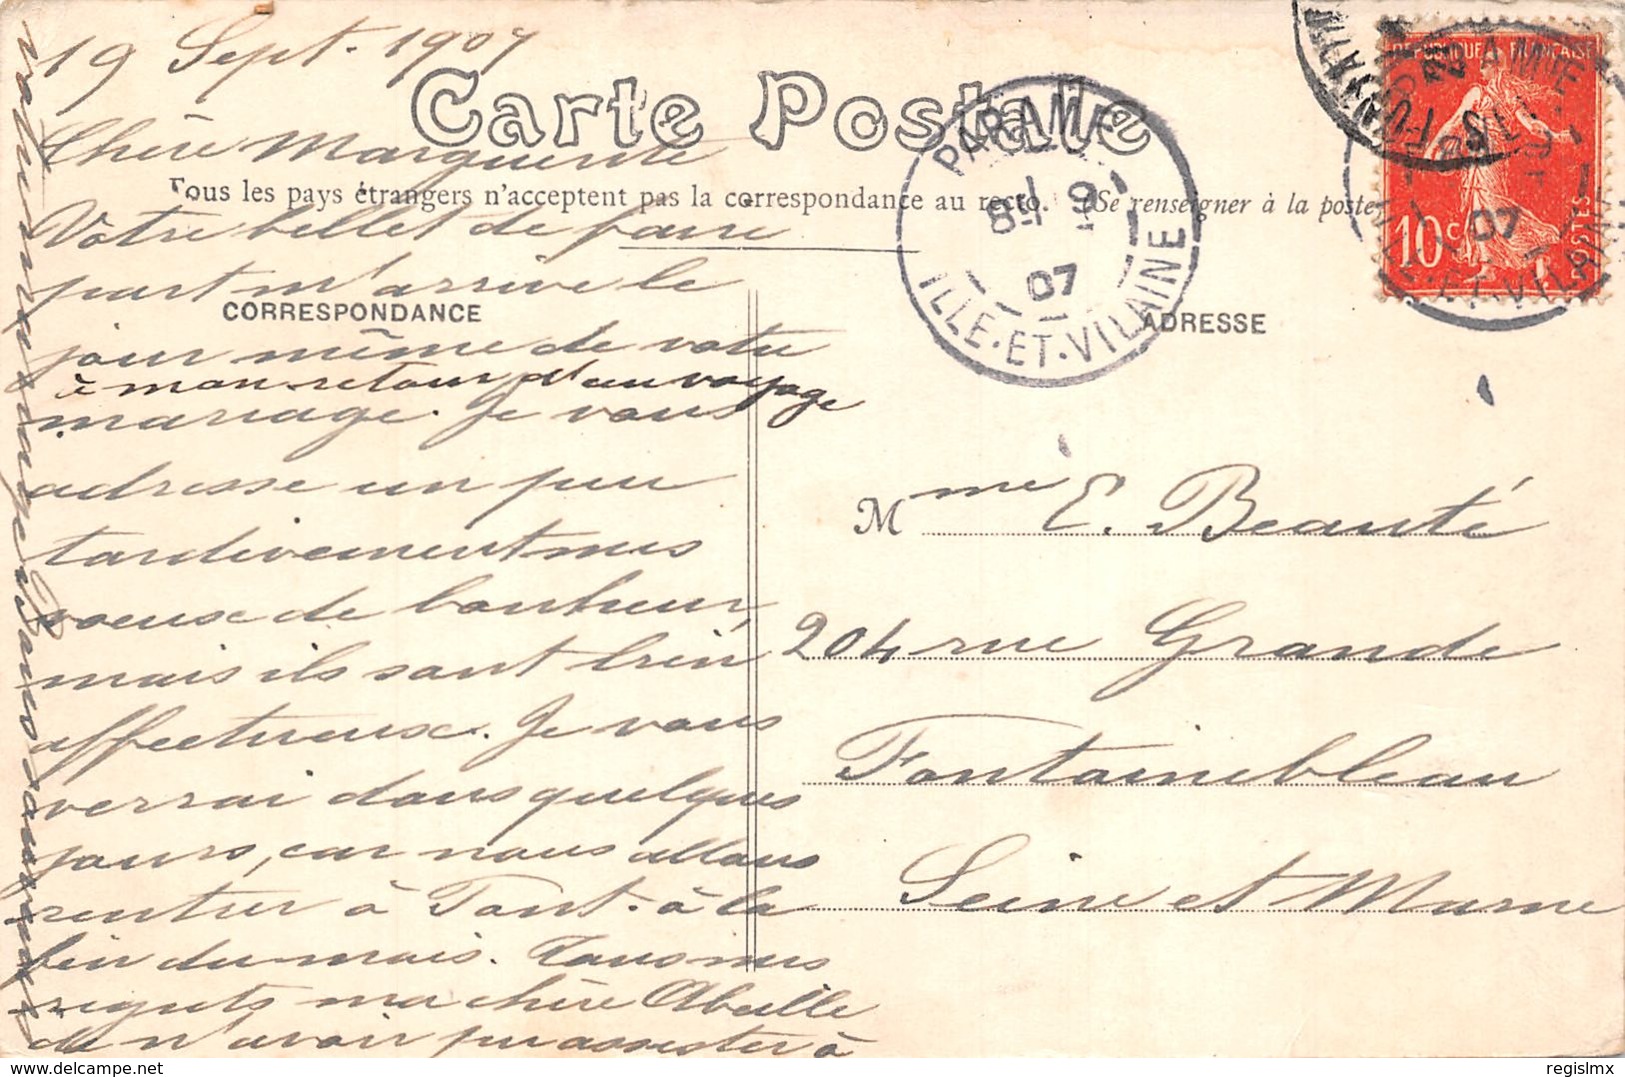 19 Sept. 1907
Carte Postale
Chère Marguerite
Tous les pays étrangers n'acceptent pas la correspondance au recto. (Se renseigner à la poste
Votre billet de faire
part m'arrive le
CORRESPONDANCE
ADRESSE
jour même de votre
à mon retour d'un voyage
mariage. Je vous
adresse un peu
tardivement mes
voeux de bonheur,
mais ils sont bien
affectueux. Je vous
verrai dans quelques
jours, car nous allons
rentrer à Font. à la
fin du mois. Tous mes
regrets ma chère Abeille
de n'avoir pu assister à
Mme E. Beauté
204 rue Grande
Fontainebleau
Seine et Marne
PARAMÉ
8H 9
07
ILLE-ET-VILAINE
REPUBLIQUE FRANÇAISE
10c
POSTES
07
regislmx